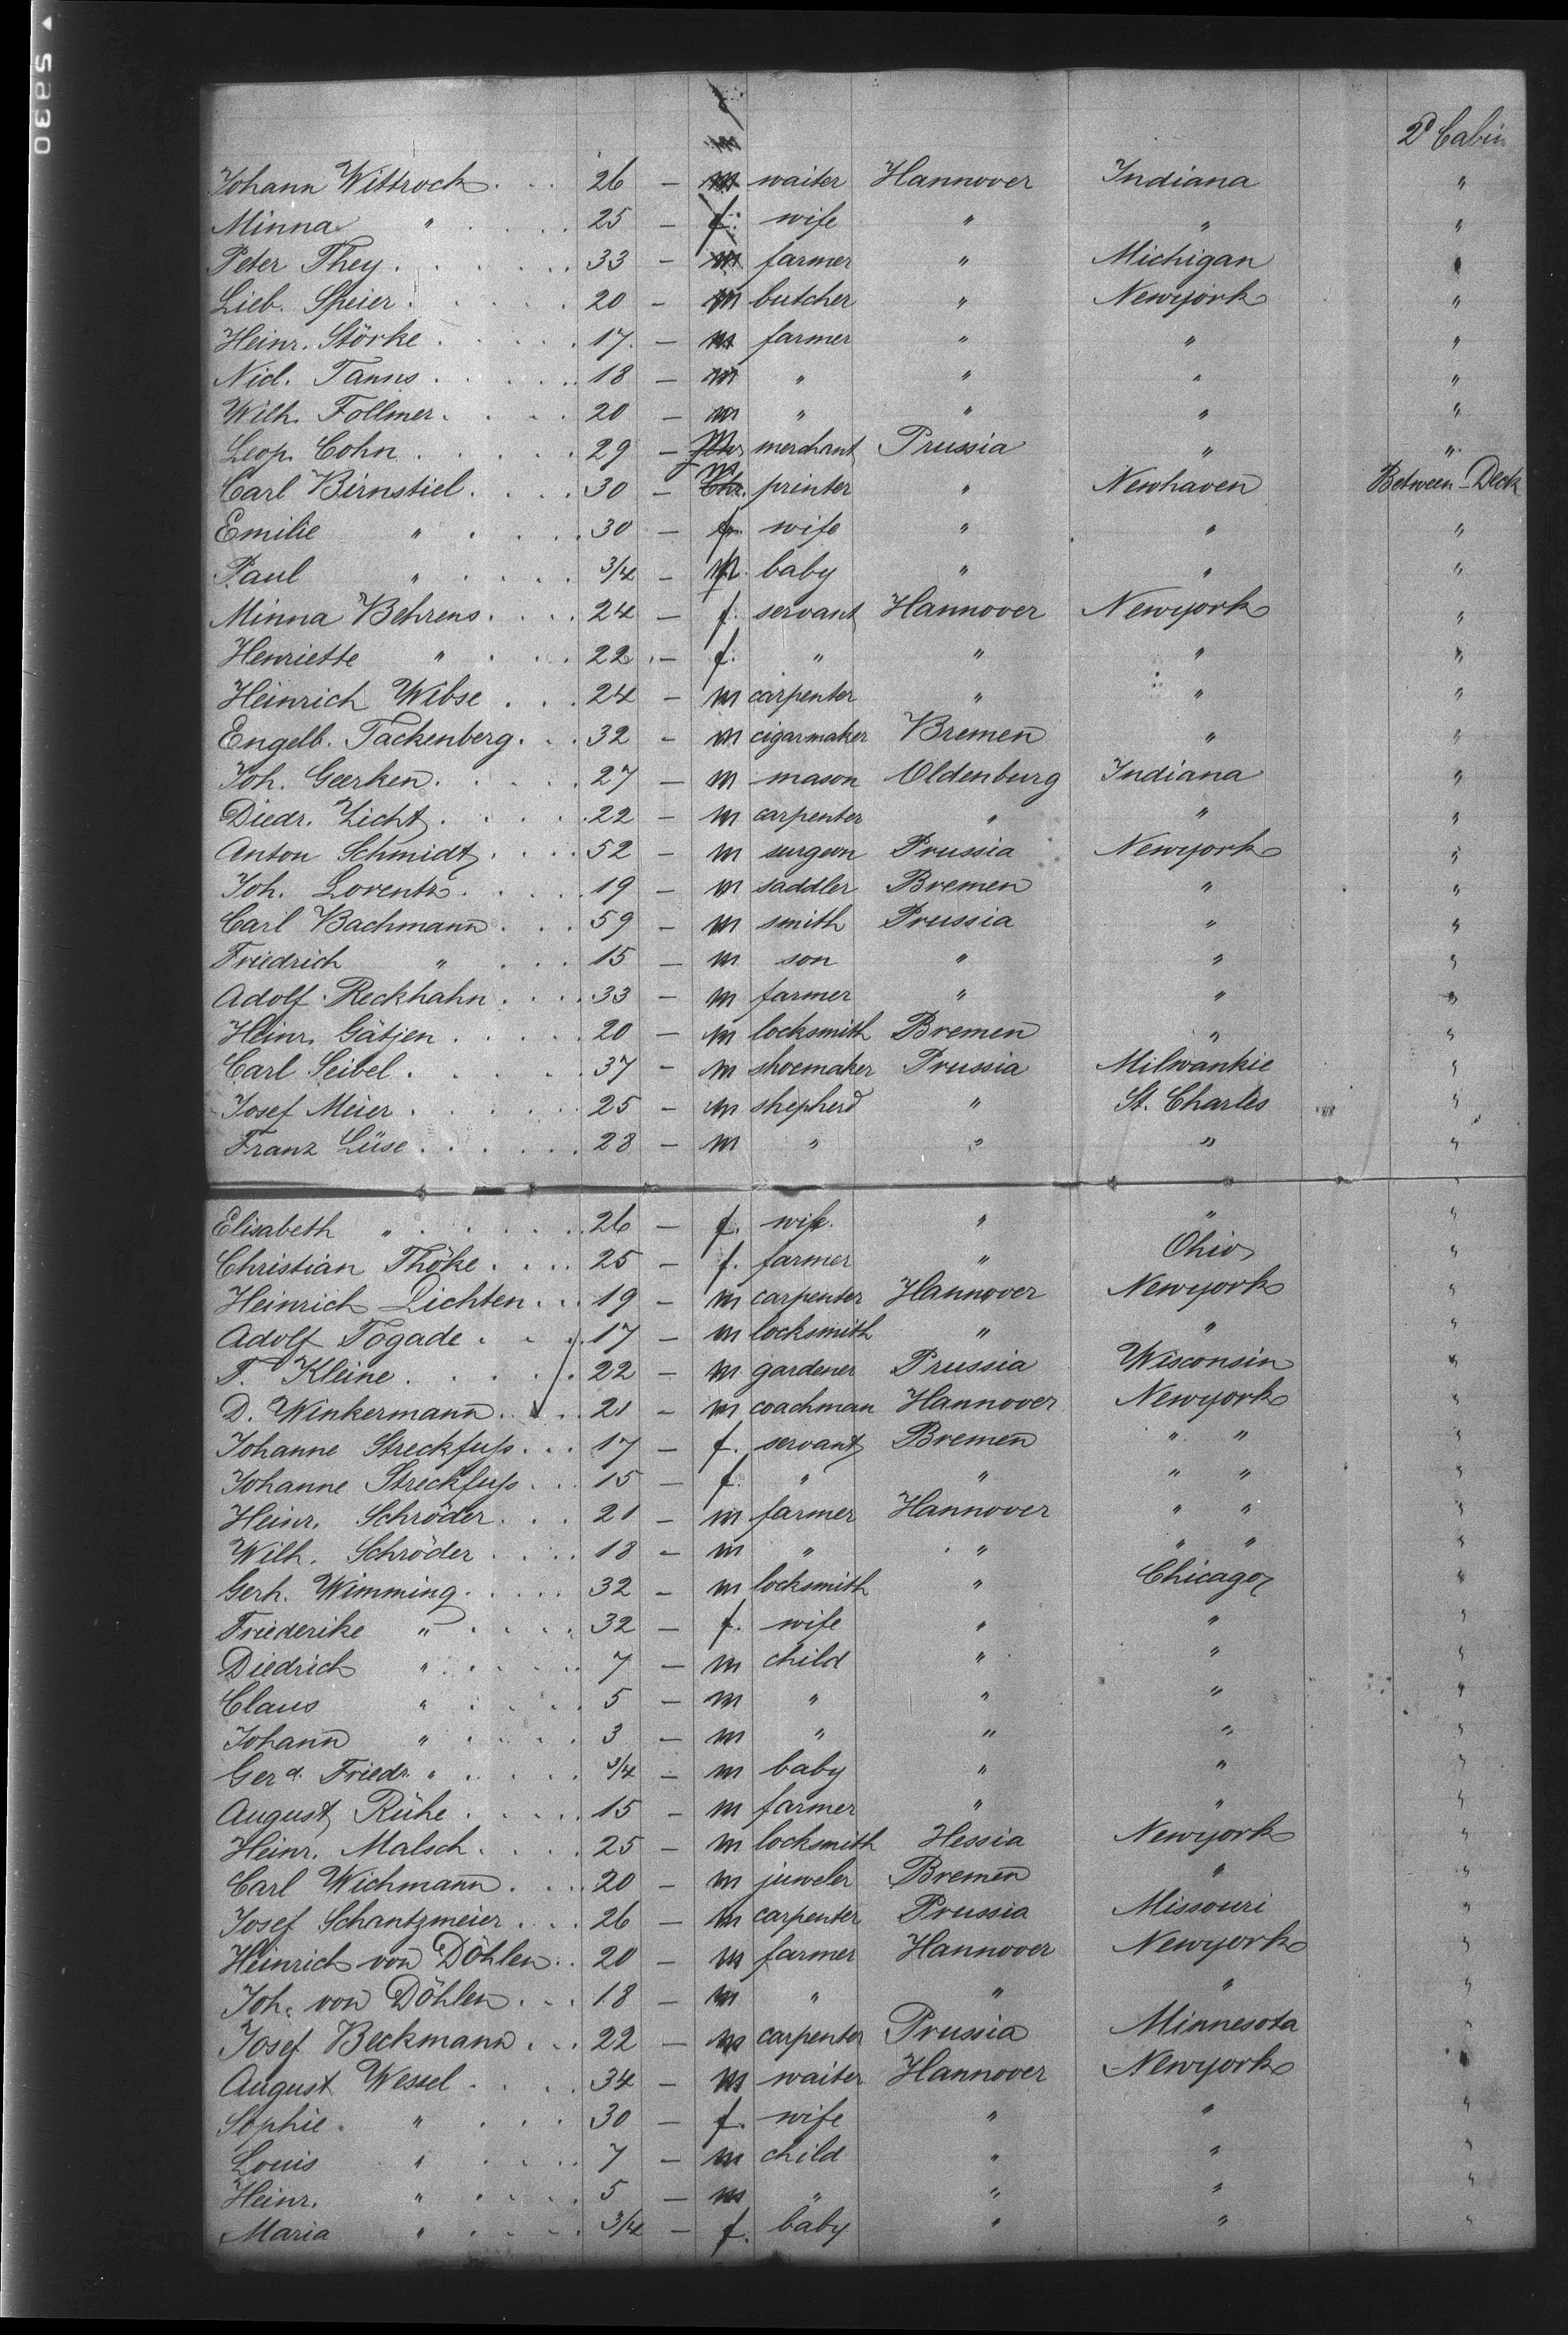 2d Cabin
Johann Wittrock . . . 26 — m waiter Hannover Indiana "
Minna " . . . . 25 — f. wife " " "
Peter They . . . . . . 33 — m farmer " Michigan "
Lieb. Speier . . . . . 20 — m butcher " Newyork "
Heinr. Störke . . . . . 17. — m farmer " " "
Nicl. Tanns . . . . . . 18 — m " " " "
Wilh. Follmer . . . . 20 — m " " " "
Leop. Cohn . . . . . . 29 — m merchant Prussia " "
Carl Birnstiel . . . . 30 — m printer " Newhaven Between-Deck
Emilie " . . . . 30 — f. wife " " "
Paul " . . . . 3/4 — baby " " "
Minna Behrens . . . . 24 — f. servant Hannover Newyork "
Henriette " . . . . 22 — f. " " " "
Heinrich Wibse . . . 24 — m carpenter " " "
Engelb. Tackenberg . . . 32 — m cigarmaker Bremen " "
Joh. Geerken . . . . . 27 — m mason Oldenburg Indiana "
Diedr. Licht . . . . . 22 — m carpenter " " "
Anton Schmidt . . . . 52 — m surgeon Prussia Newyork "
Joh. Lorentz . . . . . 19 — m saddler Bremen " "
Carl Bachmann . . . 59 — m smith Prussia " "
Friedrich " . . . 15 — m son " " "
Adolf Reckhahn . . . . 33 — m farmer " " "
Heinr. Gätjen . . . . . 20 — m locksmith Bremen " "
Carl Seibel . . . . . 37 — m shoemaker Prussia Milwaukie "
Josef Meier . . . . . . 25 — m shepherd " St. Charles "
Franz Lüse . . . . . . 28 — m " " " "
Elisabeth " . . . . . 26 — f. wife. " " "
Christian Thöke . . . . 25 — f. farmer " Ohio "
Heinrich Lichten . . . 19 — m carpenter Hannover Newyork "
Adolf Togade . . . . 17 — m locksmith " " "
F. Kleine . . . . . . 22 — m gardener Prussia Wisconsin "
D. Winkermann . . . . 21 — m coachman Hannover Newyork "
Johanne Streckfuß . . . 17 — f. servant Bremen " " "
Johanne Streckfuß . . . 15 — f. " " " " "
Heinr. Schröder . . . 21 — m farmer Hannover " " "
Wilh. Schröder . . . . 18 — m " " " " "
Gerh. Wimming . . . . . 32 — m locksmith " Chicago "
Friederike " . . . . 32 — f. wife " " "
Diedrich " . . . . . 7 — m child " " "
Claus " . . . . 5 — m " " " "
Johann " . . . . 3 — m " " " "
Gerd. Friedr. " . . . . 3/4 — m baby " " "
August Rühe . . . . . 15 — m farmer " " "
Heinr. Malsch . . . . 25 — m locksmith Hessia Newyork "
Carl Wichmann . . . . 20 — m juweler Bremen " "
Josef Schantzmeier . . . 26 — m carpenter Prussia Missouri "
Heinrich von Döhlen . . 20 — m farmer Hannover Newyork "
Joh. von Döhlen . . . 18 — m " " " "
Josef Beckmann . . . 22 — m carpenter Prussia Minnesota "
August Wessel . . . . 34 — m waiter Hannover Newyork "
Sophie . " . . . 30 — f. wife " " "
Louis " . . . . 7 — m child " " "
Heinr. " . . . . 5 — m " " " "
Maria " . . . . 3/4 — f. baby " " "